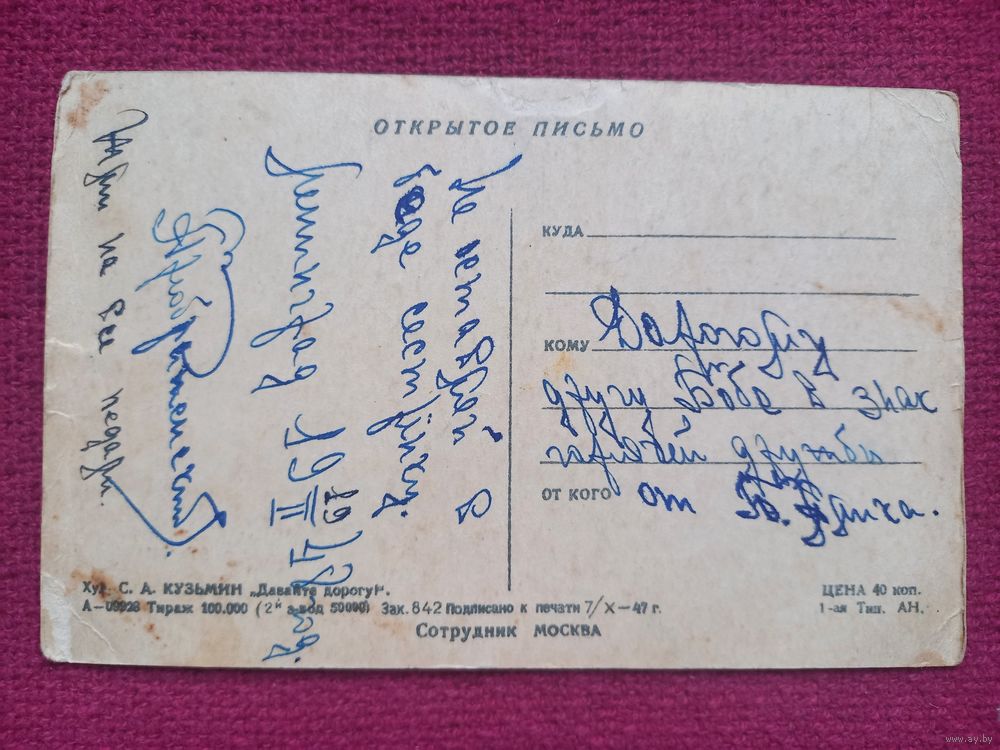 ОТКРЫТОЕ ПИСЬМО
Не оставляй в
беде сестёнку.
Ленинград 19 29/II 48 год.
на все
КУДА
КОМУ Дорогому
другу Бобе в знак
дружбы
ОТ КОГО от В.
Худ. С. А. КУЗЬМИН „Давайте дорогу!".
А—09928 Тираж 100.000 (2й завод 50000) Зак. 842 Подписано к печати 7/X—47 г.
Сотрудник МОСКВА
ЦЕНА 40 коп.
1-ая Тип. АН.
www.ay.by